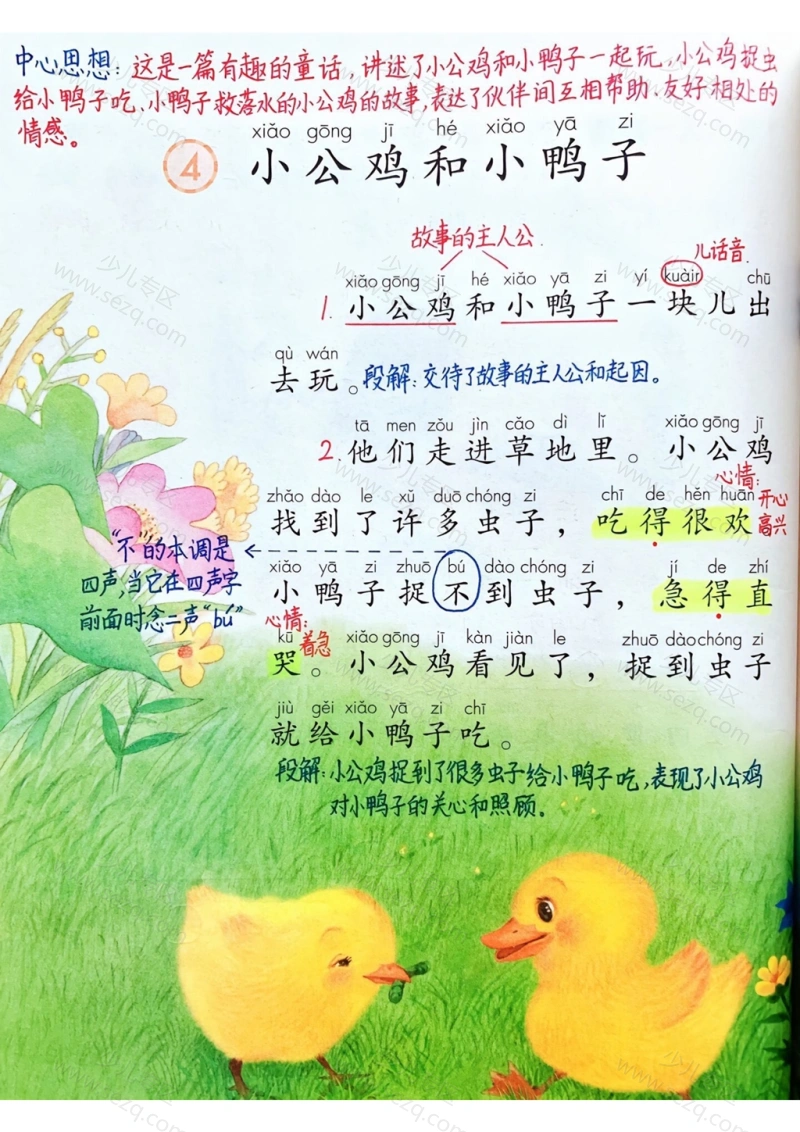 中心思想：这是一篇有趣的童话，讲述了小公鸡和小鸭子一起玩，小公鸡捉虫
给小鸭子吃，小鸭子救落水的小公鸡的故事，表达了伙伴间互相帮助、友好相处的
情感。
xiǎo gōng jī hé xiǎo yā zi
4 小公鸡和小鸭子
故事的主人公
儿话音
xiǎo gōng jī hé xiǎo yā zi yí kuàir chū
1. 小公鸡和小鸭子一块儿出
qù wán
去玩。段解：交待了故事的主人公和起因。
tā men zǒu jìn cǎo dì lǐ xiǎo gōng jī
2. 他们走进草地里。小公鸡
心情：
开心
高兴
zhǎo dào le xǔ duō chóng zi chī de hěn huān
找到了许多虫子，吃得很欢
“不”的本调是
四声，当它在四声字
前面时念二声“bú”
xiǎo yā zi zhuō bú dào chóng zi jí de zhí
小鸭子捉不到虫子，急得直
心情：
着急
kū xiǎo gōng jī kàn jiàn le zhuō dào chóng zi
哭。小公鸡看见了，捉到虫子
jiù gěi xiǎo yā zi chī
就给小鸭子吃。
段解：小公鸡捉到了很多虫子给小鸭子吃，表现了小公鸡
对小鸭子的关心和照顾。
少儿专区
www.sezq.com